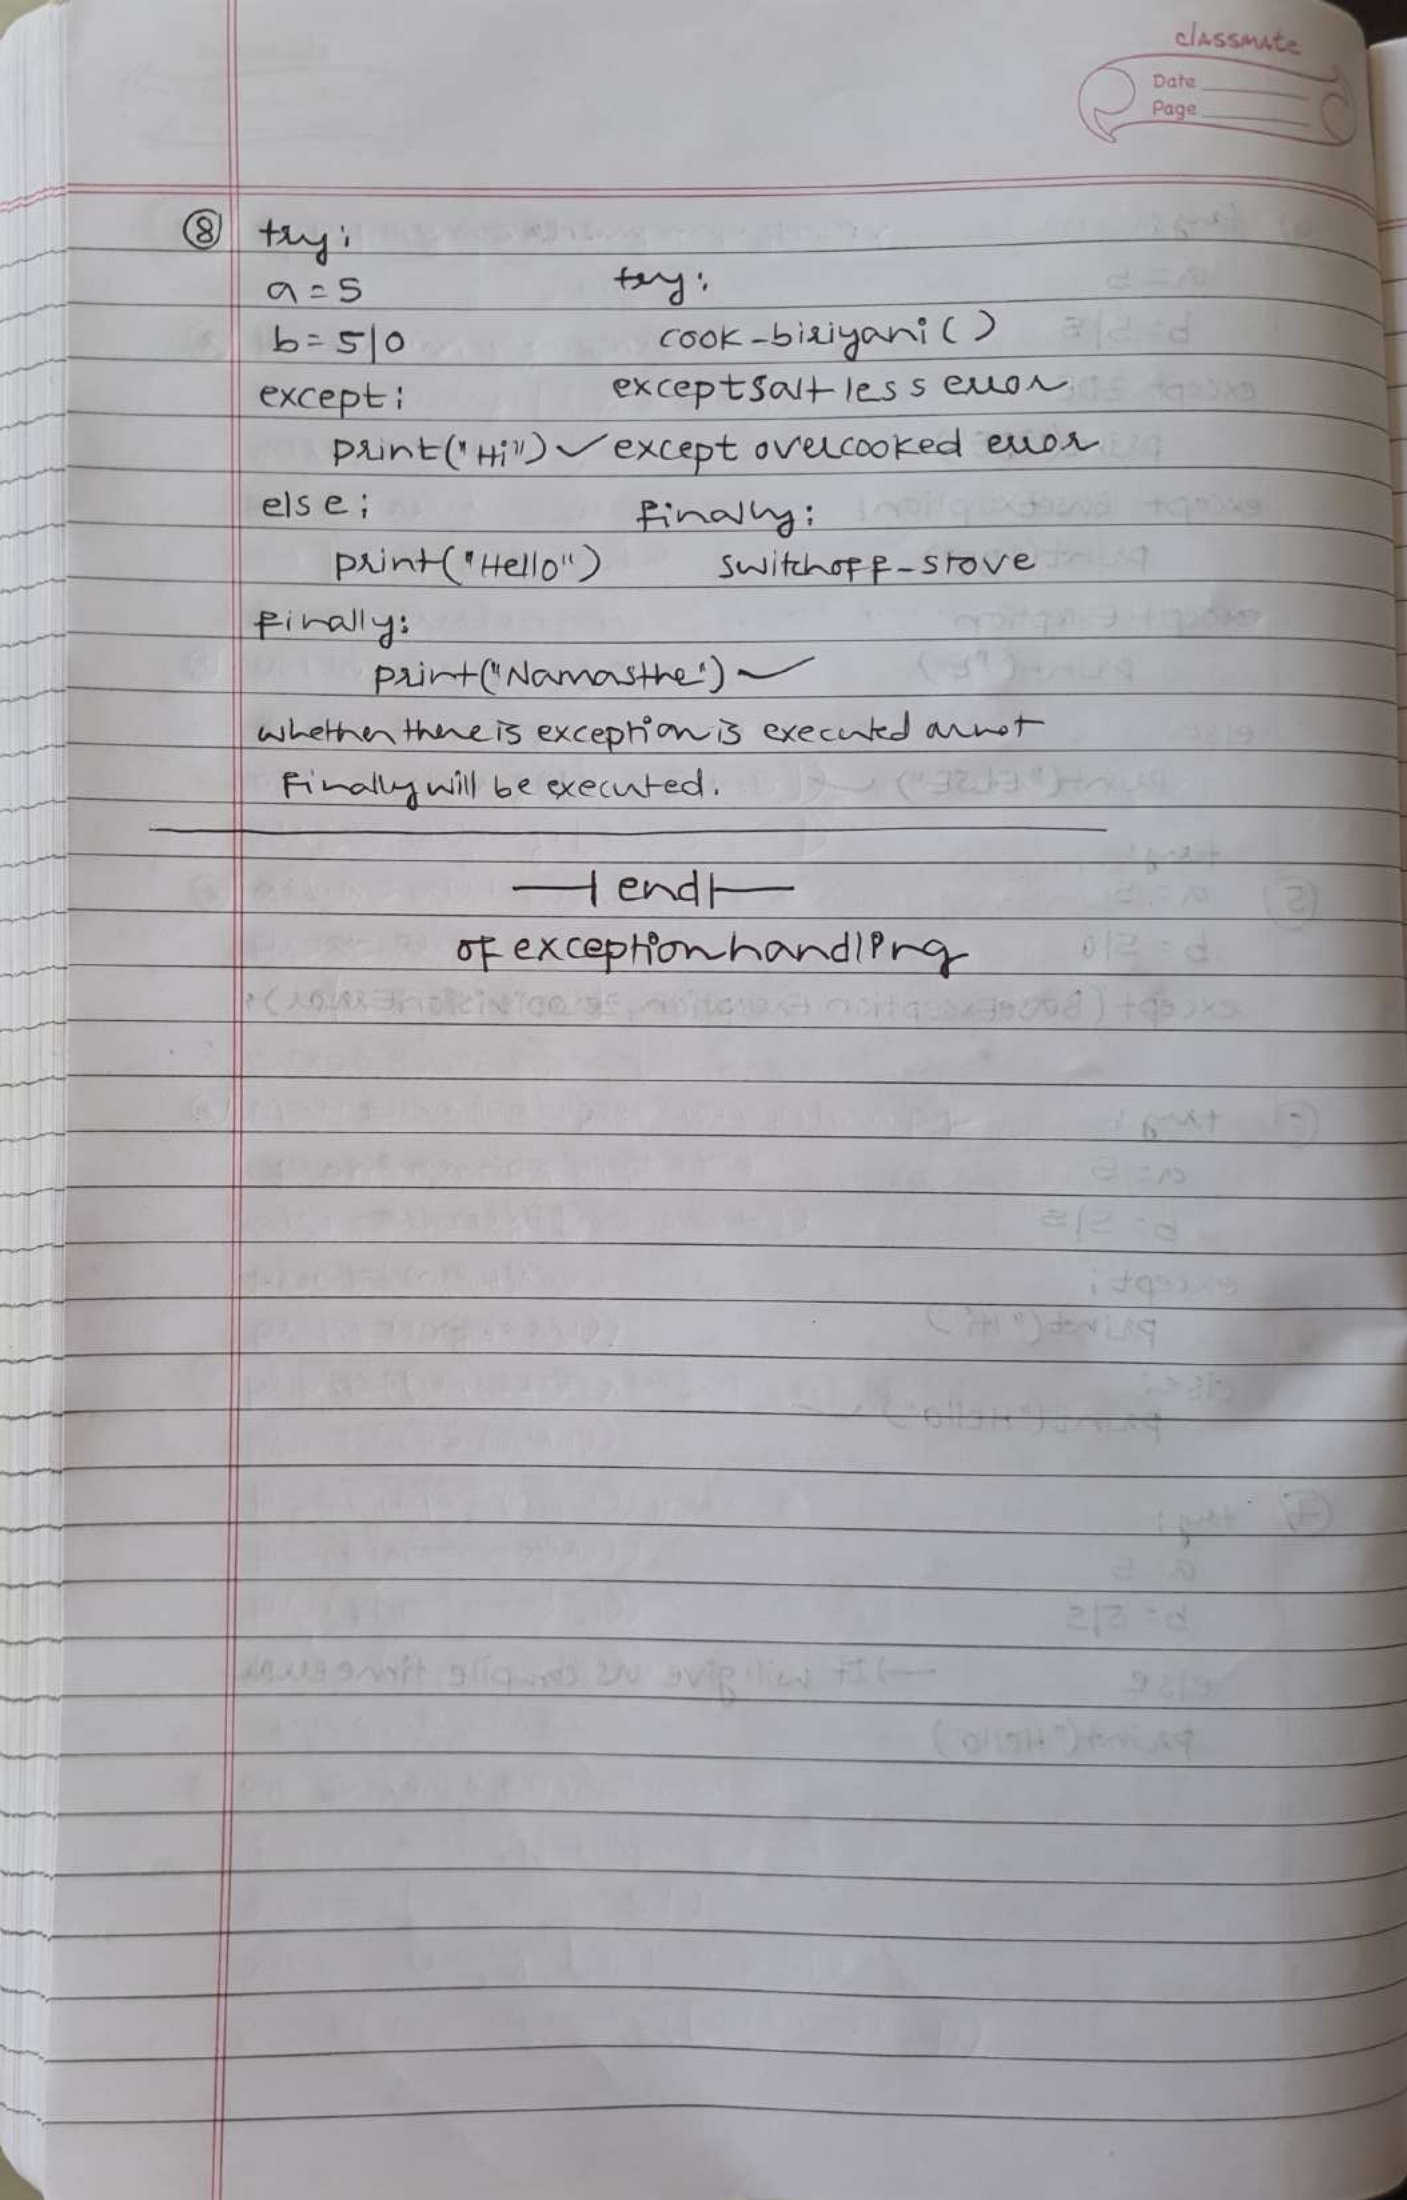 classmate
Date
Page
⑧ try:
a = 5
b = 5|0
except:
print("Hi") ✓
else:
print("Hello")
finally:
print("Namasthe") ✓
try:
cook-biriyani()
except saltless error
except overcooked error
finally:
switchoff-stove
whether there is exception is executed or not
Finally will be executed.
end
of exception handling